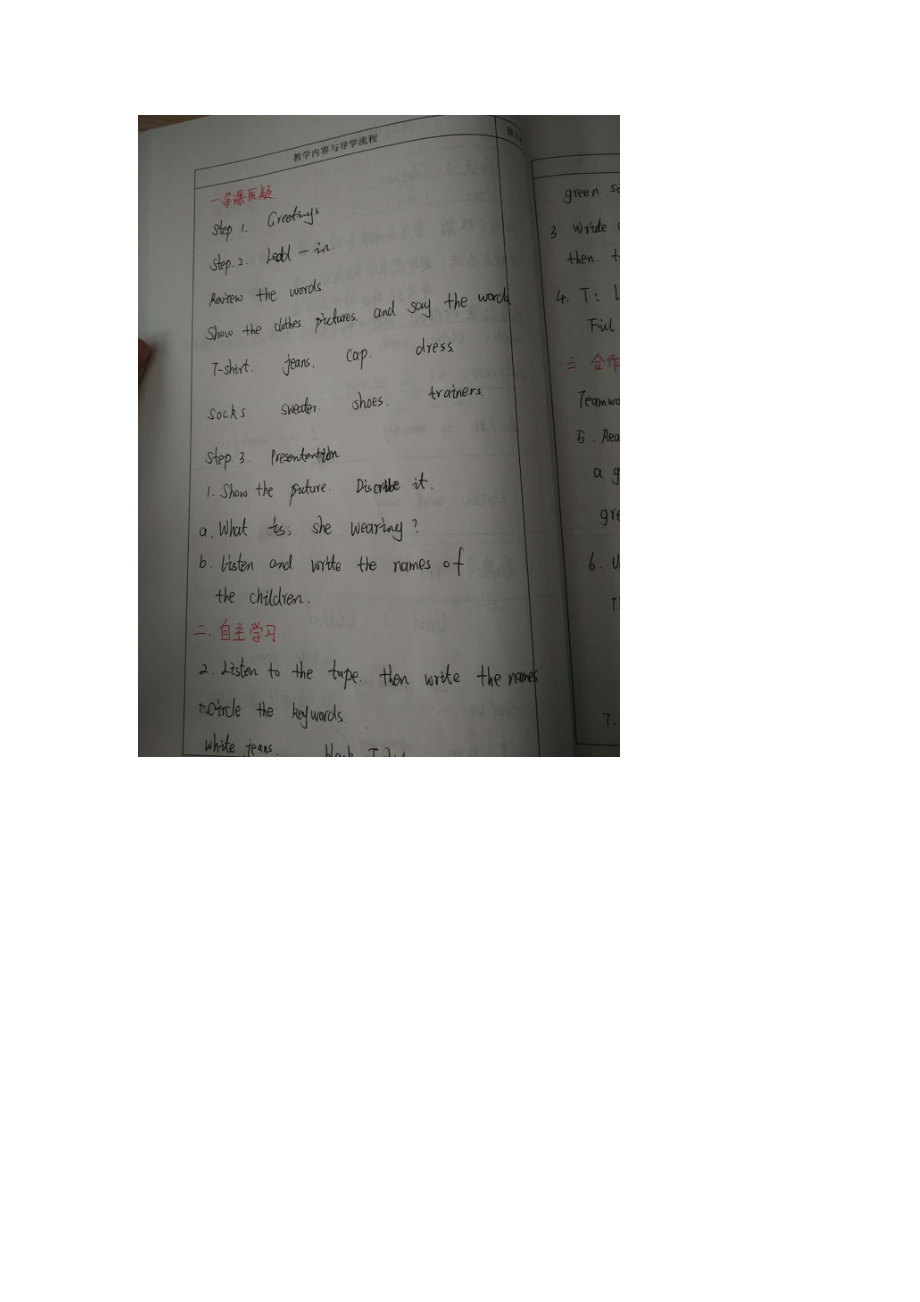 教学内容与导学流程
一 导课质疑.
Step 1. Greetings
Step. 2. Lead - in.
Review the words
Show the clothes pictures. and say the words
T-shirt. jeans. cap. dress
socks. sweater. shoes. trainers.
Step. 3. Presentention
1. Show the picture. Discribe it.
a. What is she wearing?
b. Listen and write the names of
the children.
二. 自主学习
2. Listen to the tape. then write the names
Circle the keywords.
white jeans. black
green
3. Wride
then.
4. T:
三. 合作
5.
a
6.
7.